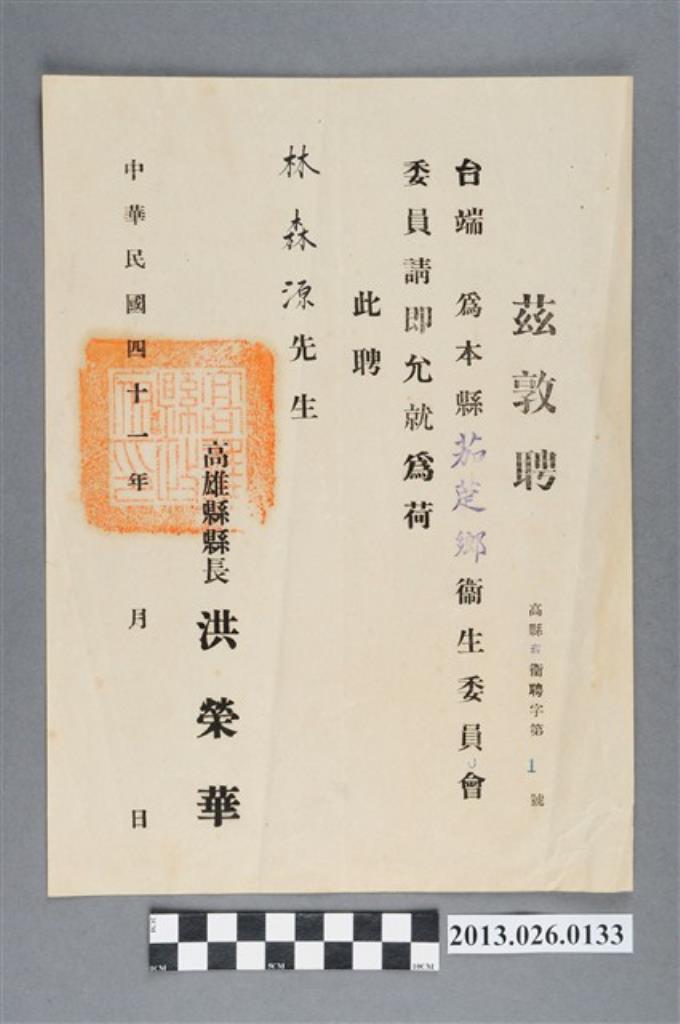 茲敦聘
高縣衛聘字第1號
台端 為本縣茄萣鄉衛生委員會
委員請即允就為荷
此聘
林森源先生
高雄縣縣長 洪榮華
中華民國四十一年 月 日
5CM
10CM
2013.026.0133